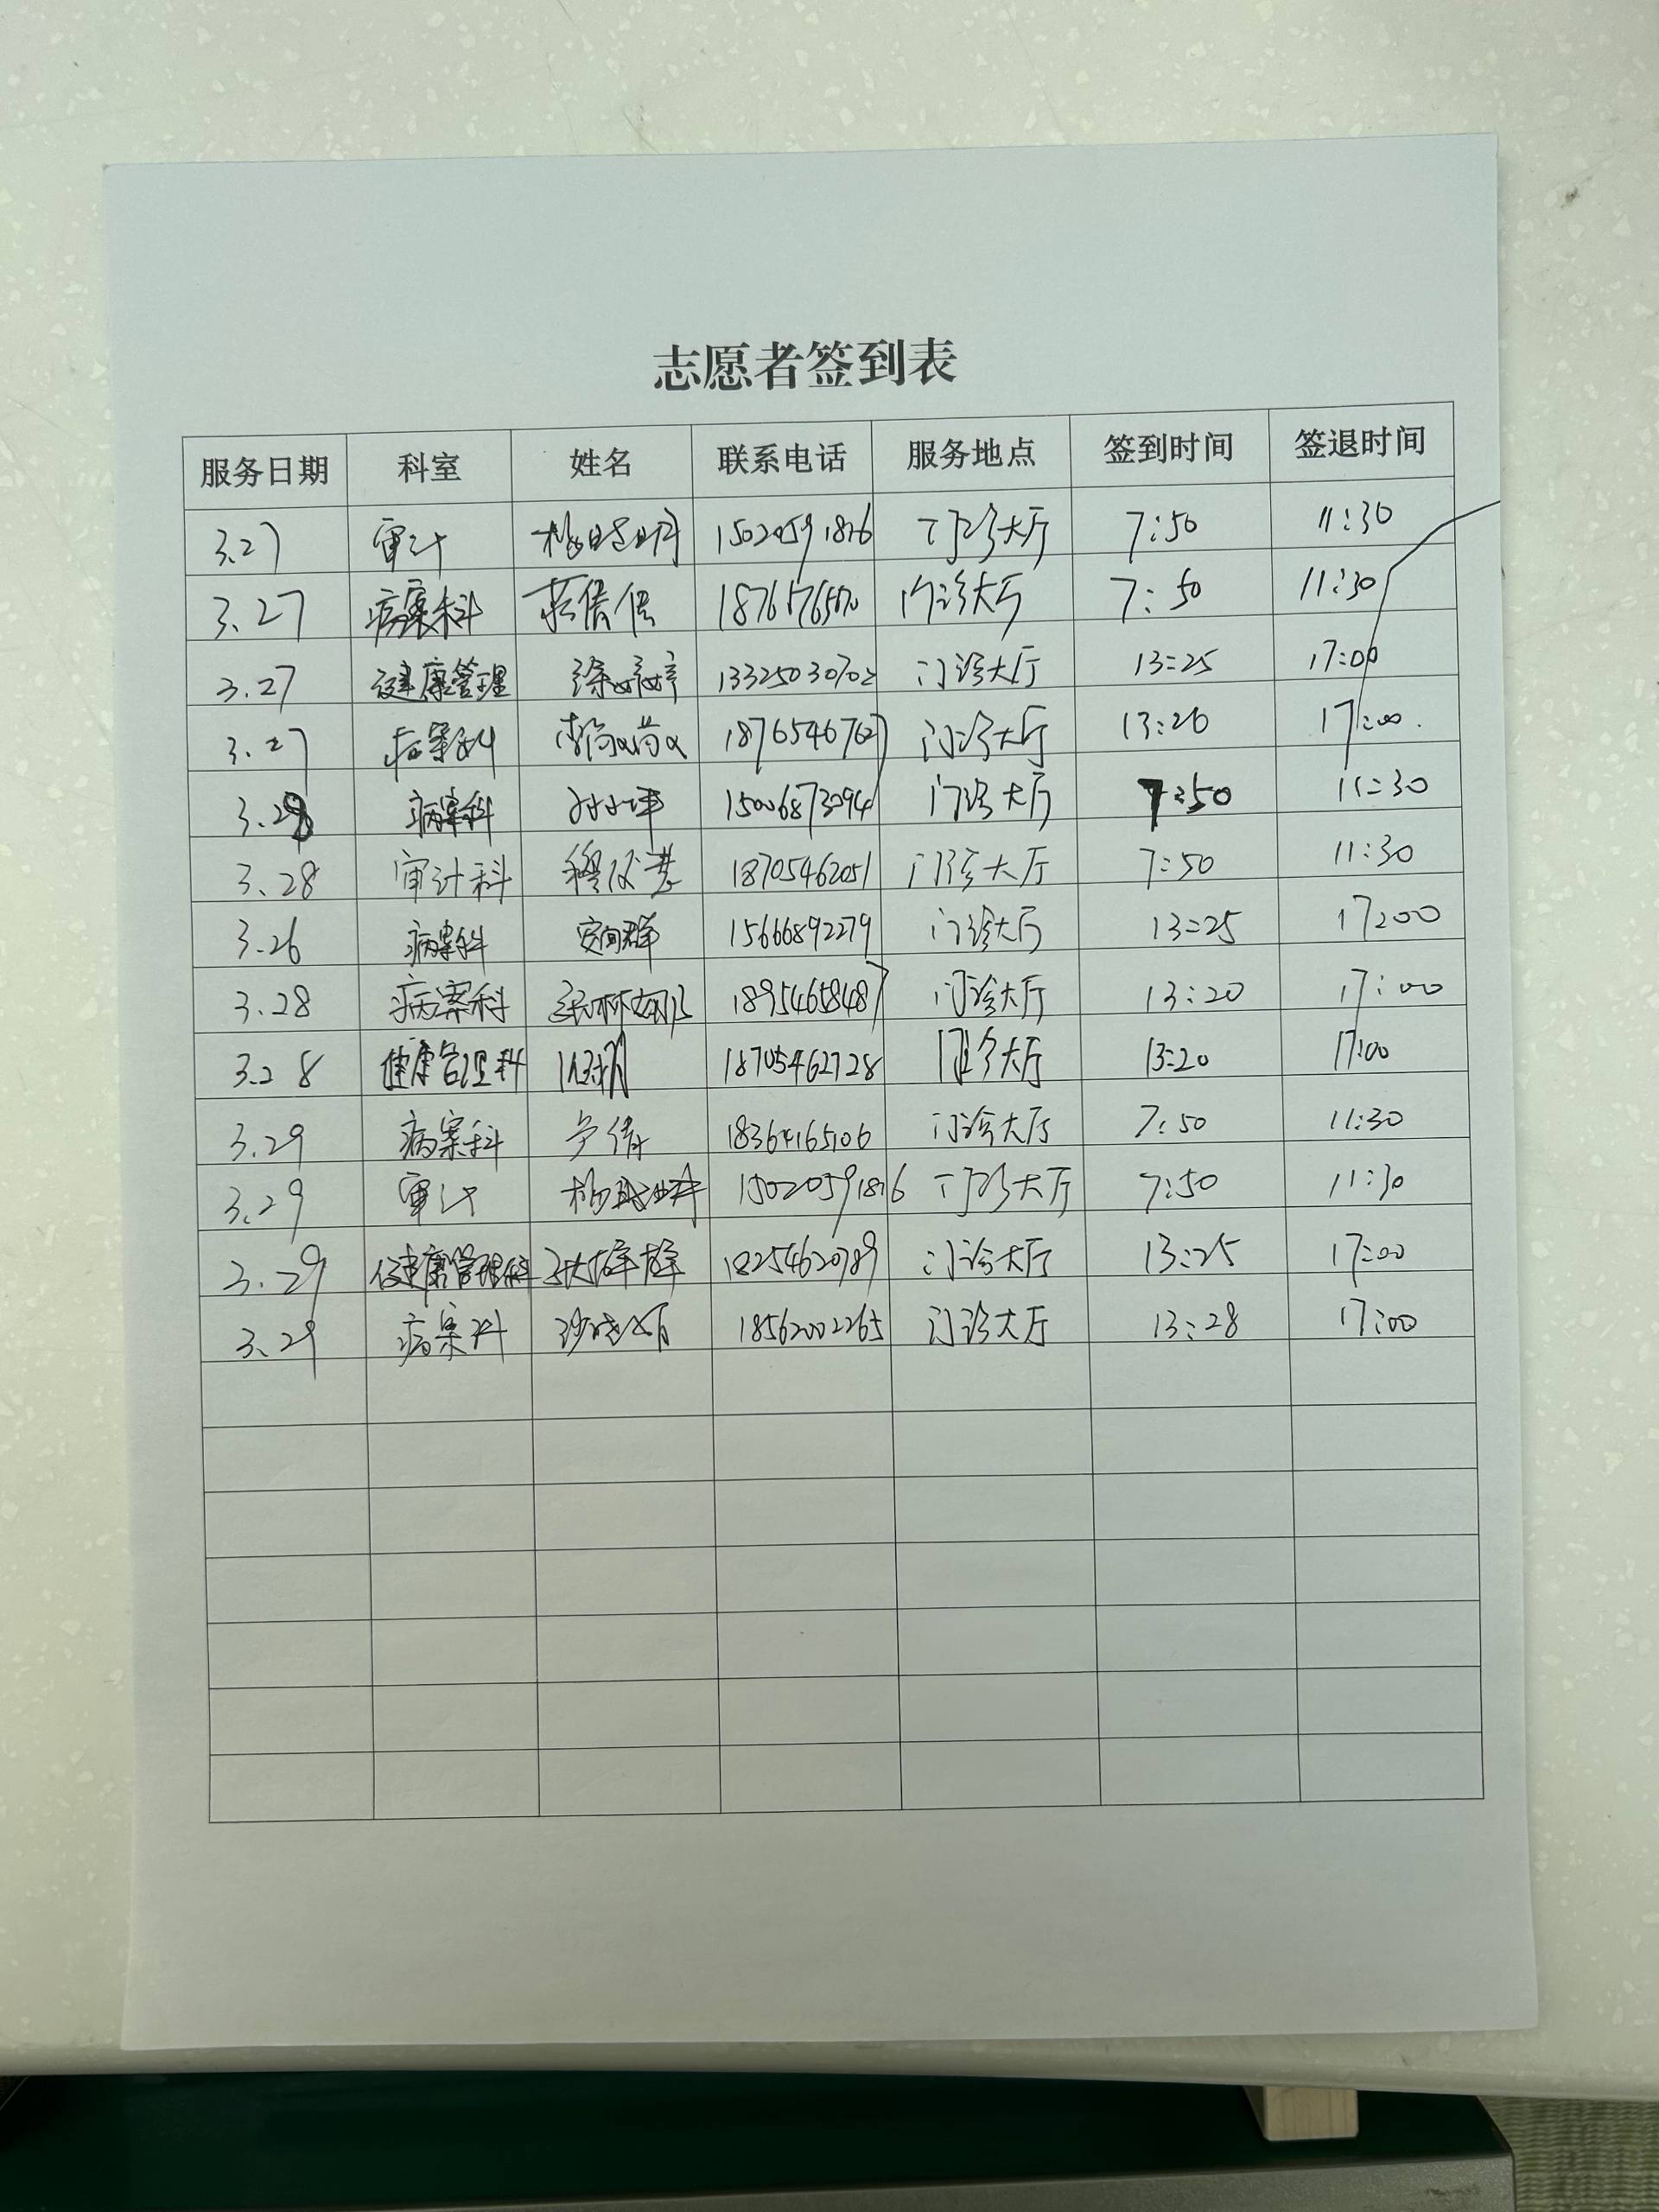 志愿者签到表
服务日期 科室 姓名 联系电话 服务地点 签到时间 签退时间
3.27 审计 15020591876 门诊大厅 7:50 11:30
3.27 病案科 门诊大厅 7:50 11:30
3.27 健康管理 13325030702 门诊大厅 13:25 17:00
3.27 病案科 18765467627 门诊大厅 13:20 17:00
3.28 病案科 15006873094 门诊大厅 7:50 11:30
3.28 审计科 18705462051 门诊大厅 7:50 11:30
3.26 病案科 15666892279 门诊大厅 13:25 17:00
3.28 病案科 18954658487 门诊大厅 13:20 17:00
3.28 健康管理科 18705462728 门诊大厅 13:20 17:00
3.29 病案科 18364165106 门诊大厅 7:50 11:30
3.29 审计 15020591876 门诊大厅 7:50 11:30
3.29 健康管理科 18254620789 门诊大厅 13:25 17:00
3.29 病案科 18562002265 门诊大厅 13:28 17:00